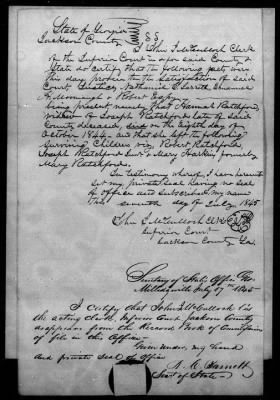 State of Georgia
Jackson County } SS
I John G McCulloch Clerk
of the Superior Court in & for said County &
State do certify that the following facts were
this day proven to the satisfaction of said
Court Justices Nathaniel C Jarratt
& Robert
being present namely that Hannah Ratchford
widow of Joseph Ratchford late of said
County deceased, died on the eighth day of
October 1844, and that she left the following
surviving children viz, Robert Ratchford
Joseph Ratchford Senr & Mary Harkins formerly
Mary Ratchford.
In testimony whereof, I have hereunto
set my private seal having no seal
of office and subscribed my name
this seventh day of July 1845
John G McCulloch Clk
Superior Court
Jackson County Ga.
Secretary of State's Office Geo
Milledgeville July 17th 1845
I certify that John G McCulloch is
the acting clerk Superior Court Jackson County
as appears from the Record Book of Commissions
of file in this office.
Given under my hand
and private seal of office
N. C. Barnett
Secy of State